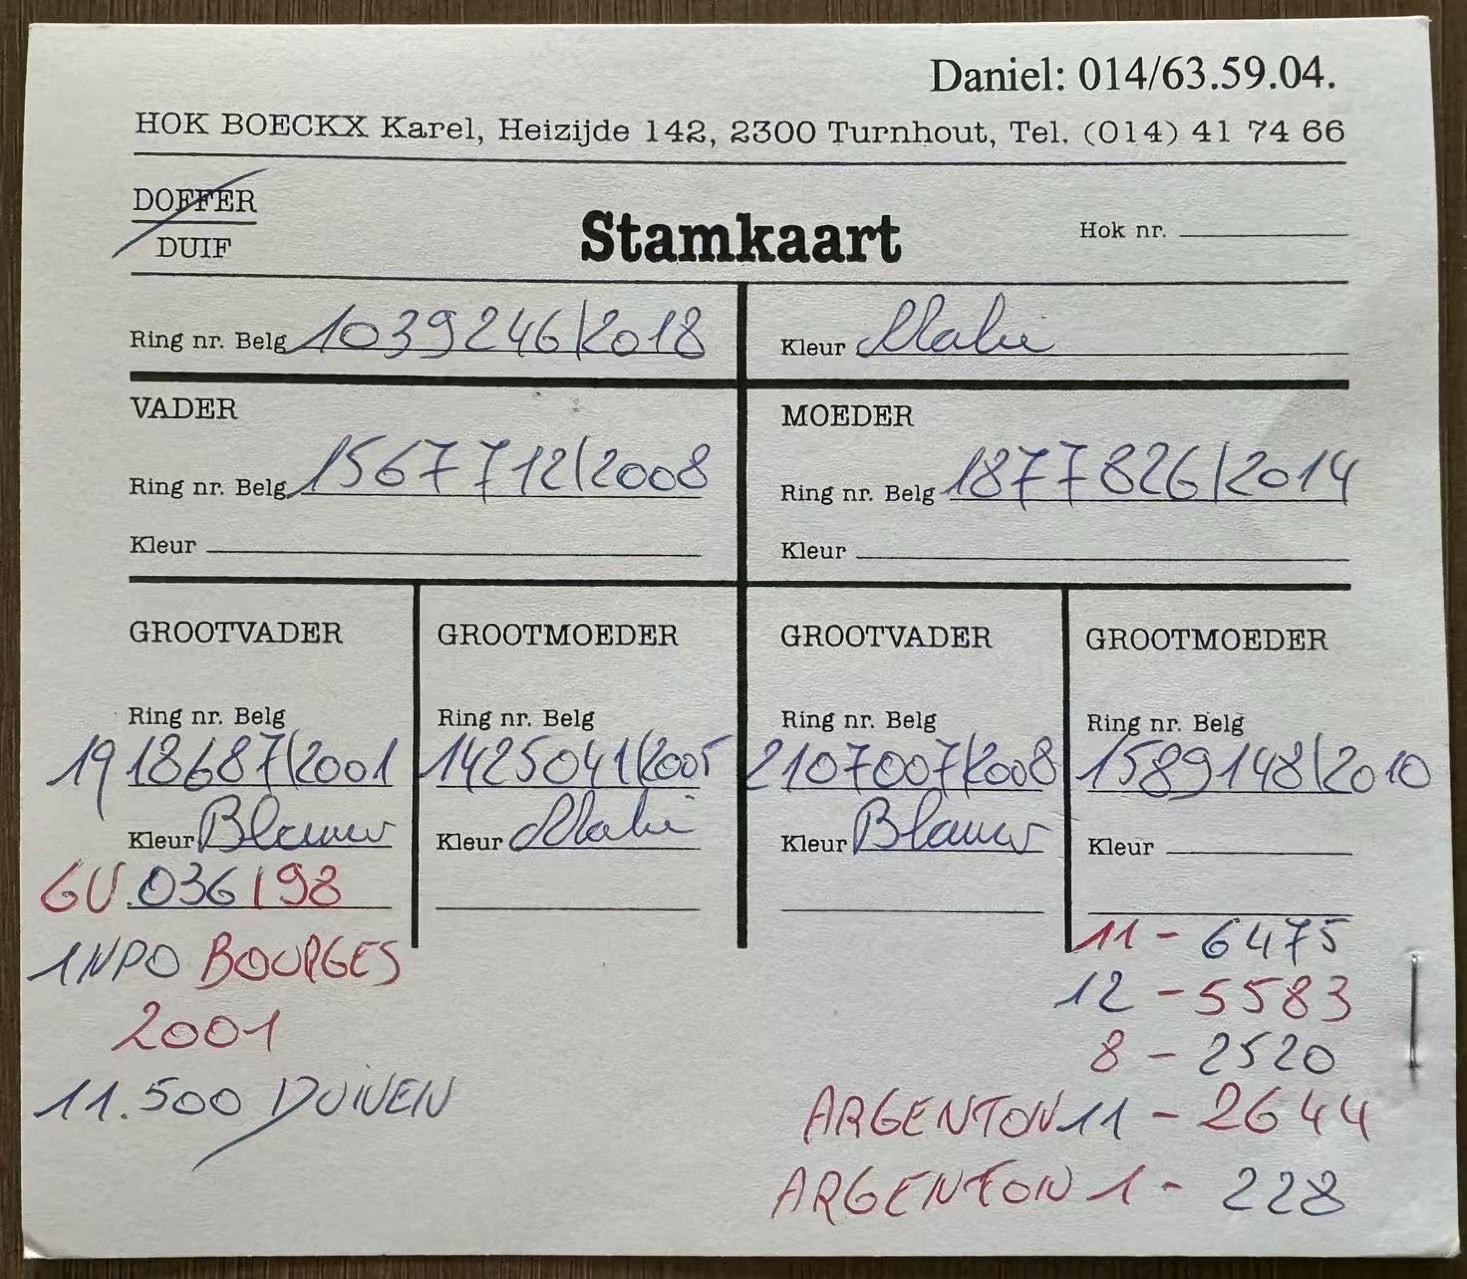 Daniel: 014/63.59.04.
HOK BOECKX Karel, Heizijde 142, 2300 Turnhout, Tel. (014) 41 74 66
DOFFER
DUIF
Stamkaart
Hok nr.
Ring nr. Belg 1039246/2018
Kleur
VADER
Ring nr. Belg 1567712/2008
Kleur
MOEDER
Ring nr. Belg 1877826/2014
Kleur
GROOTVADER
Ring nr. Belg
1918687/2001
Kleur Blauw
GV.036/98
1NPO BOURGES
2001
11.500 DUIVEN
GROOTMOEDER
Ring nr. Belg
1425041/2005
Kleur
GROOTVADER
Ring nr. Belg
2107007/2008
Kleur Blauw
GROOTMOEDER
Ring nr. Belg
1589148/2010
Kleur
11 - 6475
12 - 5583
8 - 2520
ARGENTON 11 - 2644
ARGENTON 1 - 228